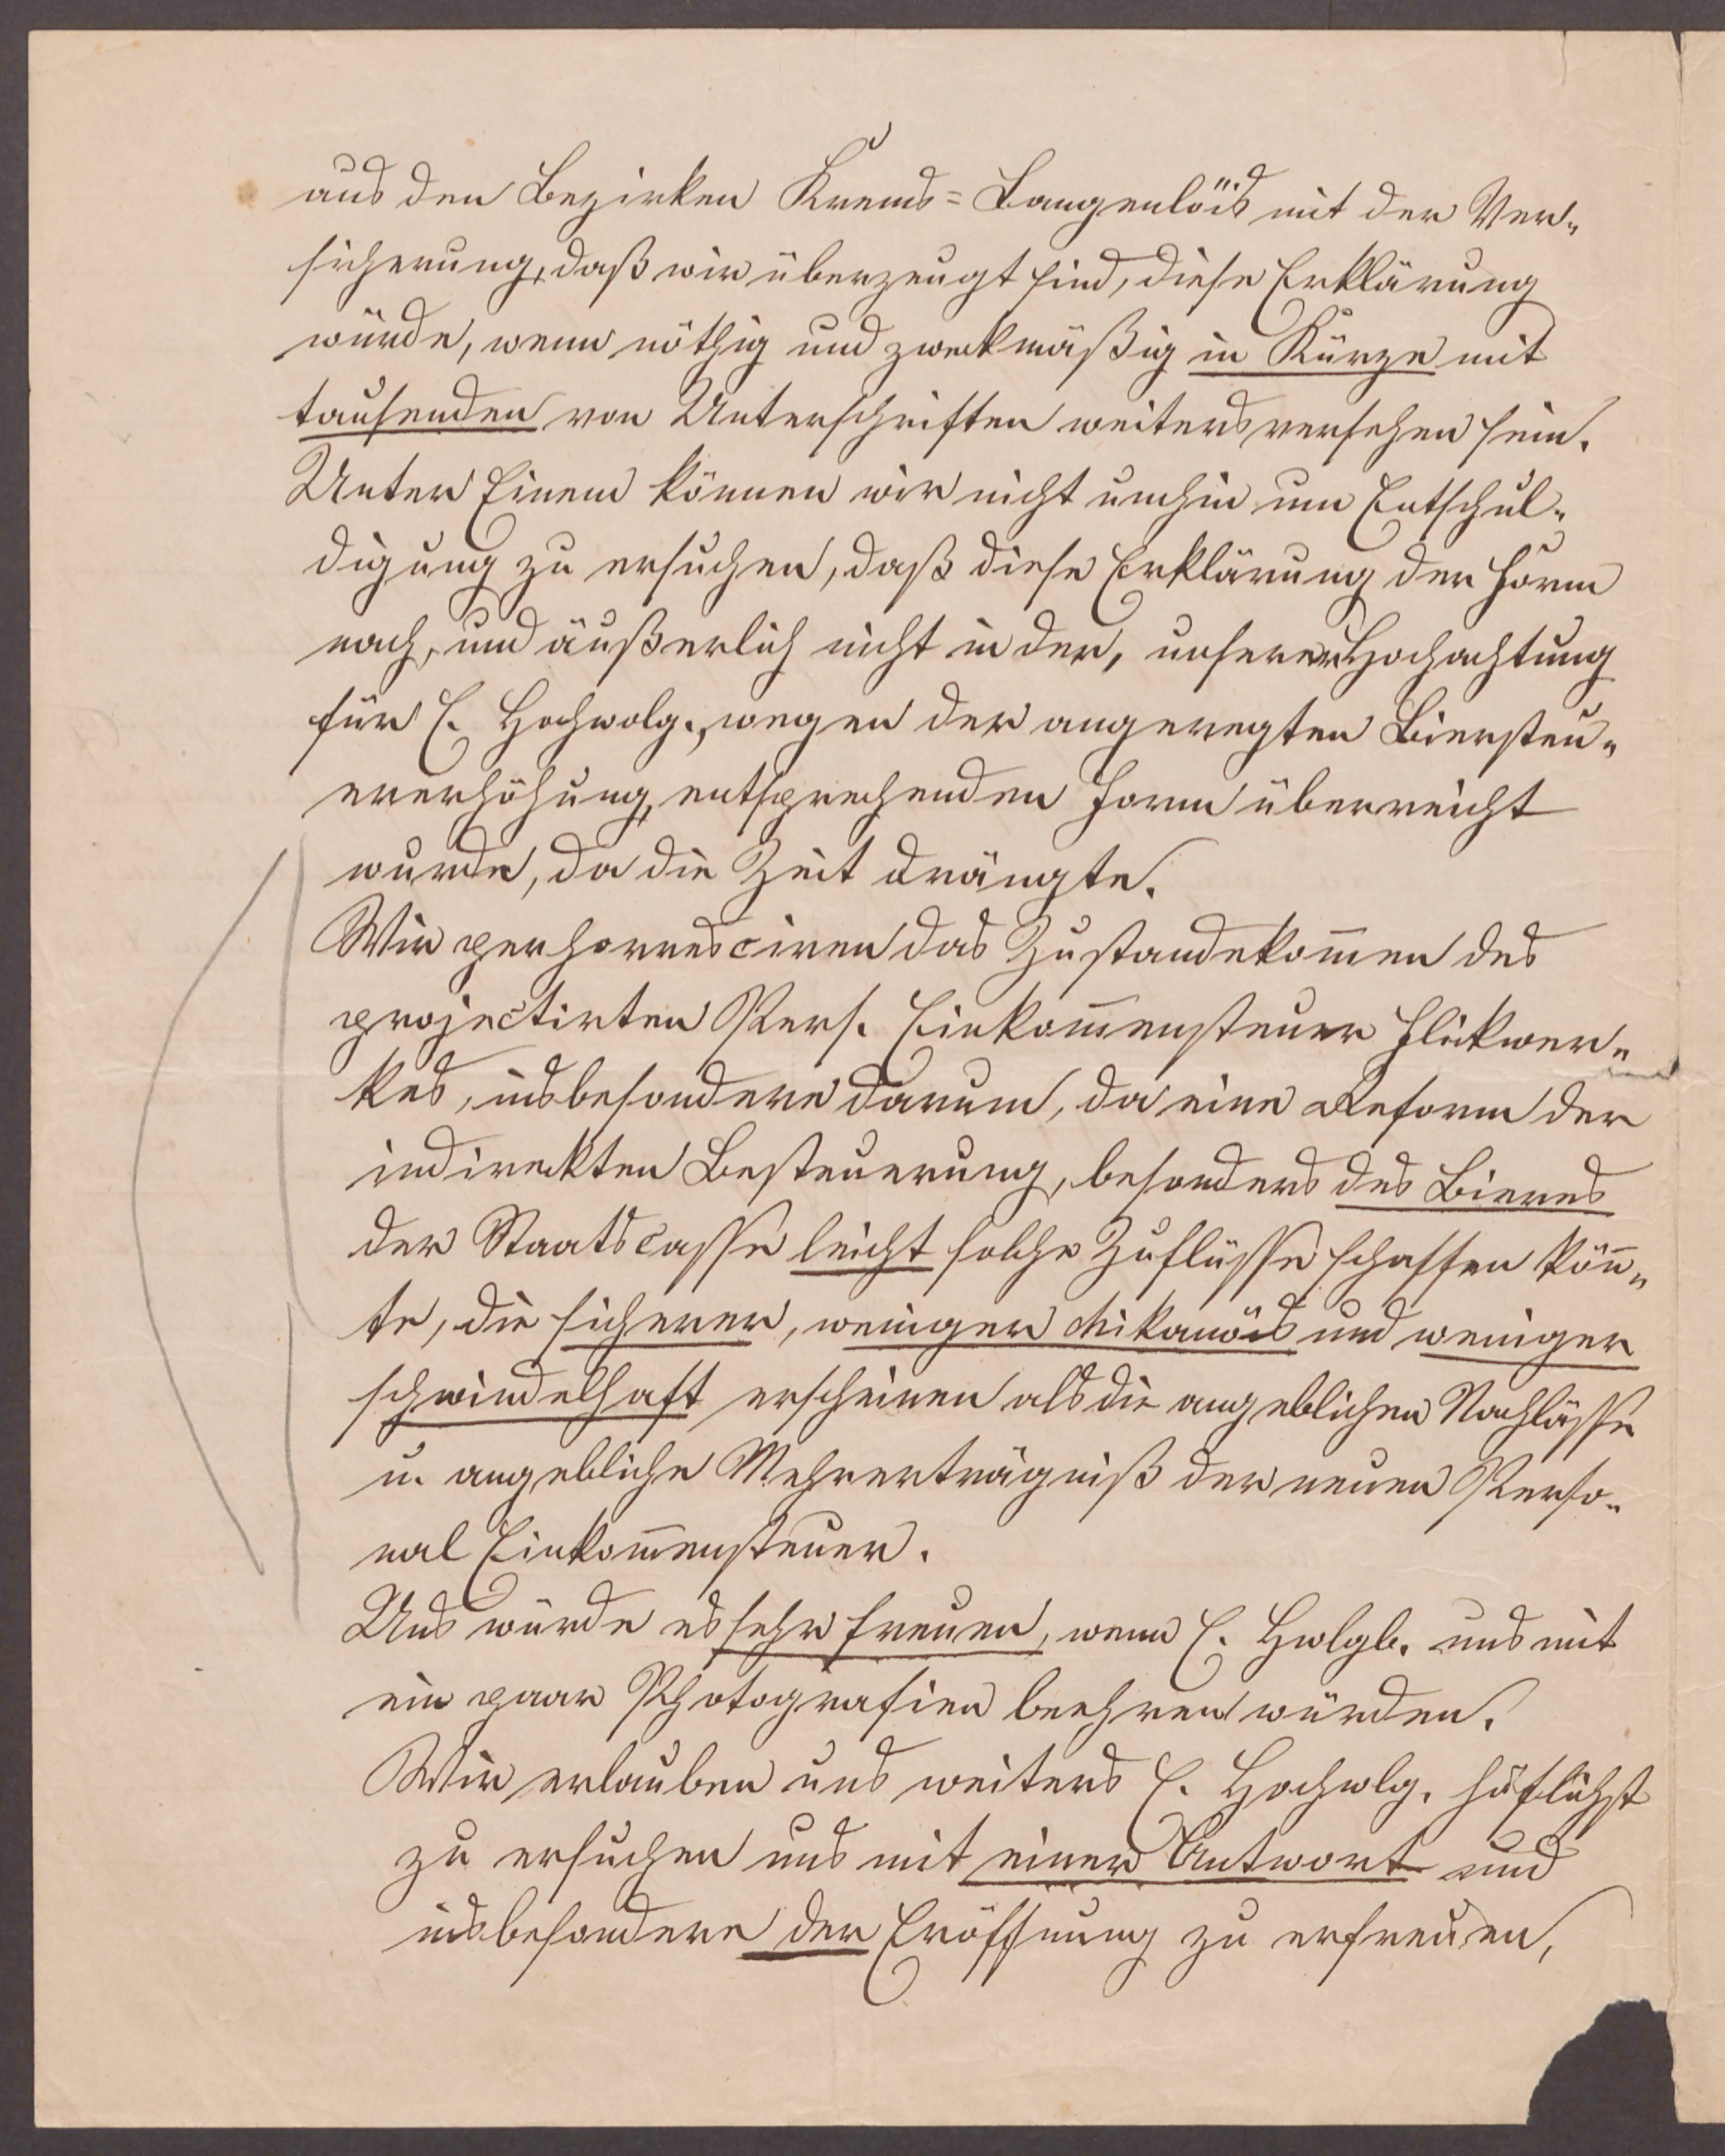 aus den Bezirken Krems=Langenlöis mit der Ver„
sicherung, daß wir überzeugt sind, diese Erklärung
würde, wenn nöthig und zweckmäßig in Kürze mit
tausenden von Unterschriften weiters versehen sein.
Unter Einem können wir nicht umhin um Entschul„
digung zu ersuchen, daß diese Erklärung der Form
nach, und äußerlich nicht in der, unserer Hochachtung
für E. Hochwolg., wegen der angeregten Biersteu„
ererhöhung, entsprechenden Form überreicht
wurde, da die Zeit drängte.
Wir perhorresciren das Zustandekom̅en des
projectirten Pers. Einkom̅ensteuer Flickwer„
kes, insbesondere darum, da eine Reform der
indireckten Besteuerung, besonders des Bieres
der Staatscasse leicht solche Zuflüsse schaffen kön̅„
te, die sicherer, weniger chikanös und weniger
schwindelhaft erscheinen als die angeblichen Nachlässe
u. angebliche Mehrerträgniß der neuen Perso„
nal Einkom̅ensteuer.
Uns würde es sehr freuen, wenn E. Hwlgb. uns mit
ein paar Photografien beehren würden.
Wir erlauben uns weiters E. Hochwlg. höflichst
zu ersuchen uns mit einer Antwort und
insbesondere der Eröffnung zu erfreuen,